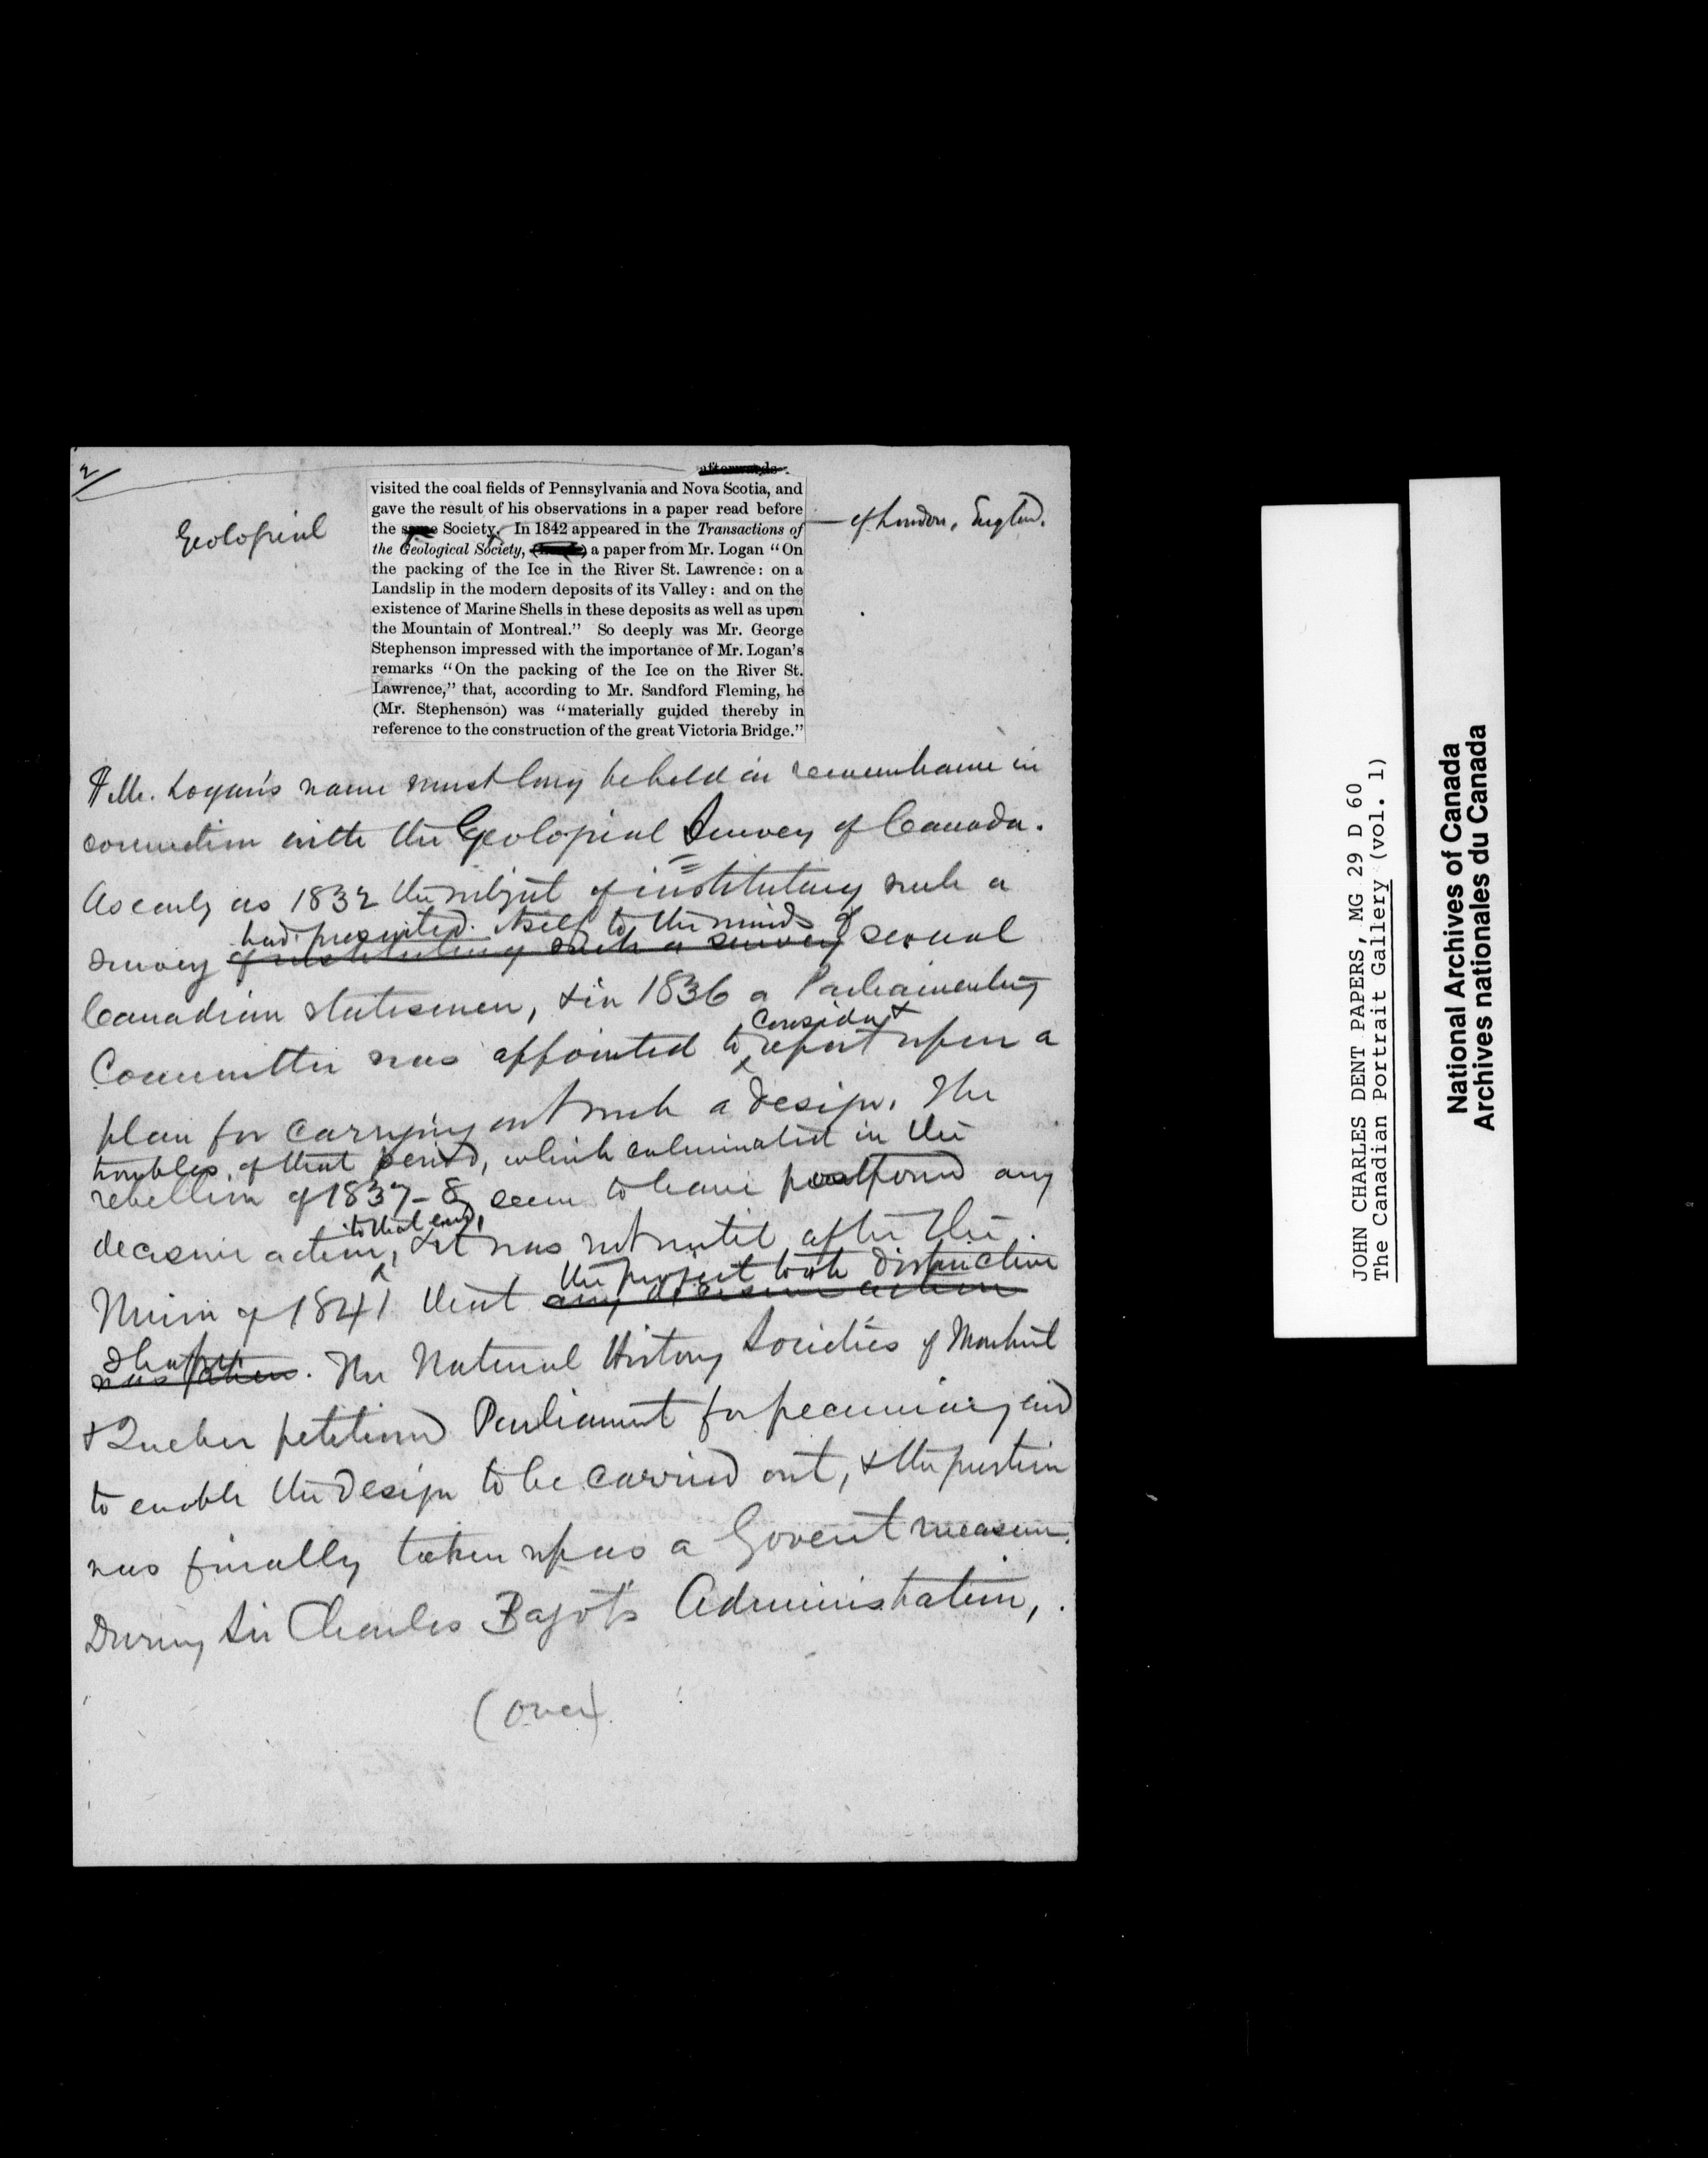 2/
afterwards
visited the coal fields of Pennsylvania and Nova Scotia, and
gave the result of his observations in a paper read before
the same Society. In 1842 appeared in the Transactions of
the Geological Society, a paper from Mr. Logan "On
the packing of the Ice in the River St. Lawrence: on a
Landslip in the modern deposits of its Valley: and on the
existence of Marine Shells in these deposits as well as upon
the Mountain of Montreal." So deeply was Mr. George
Stephenson impressed with the importance of Mr. Logan's
remarks "On the packing of the Ice on the River St.
Lawrence," that, according to Mr. Sandford Fleming, he
(Mr. Stephenson) was "materially guided thereby in
reference to the construction of the great Victoria Bridge."
Geological
— of London, England.
¶ Mr. Logan's name must long be held in remembrance in
connection with the Geological Survey of Canada.
As early as 1832 the subject of instituting such a
had presented itself to the minds of
survey of instituting such a survey several
Canadian statesmen, & in 1836 a Parliamentary
consider &
Committee was appointed to report upon a
plan for carrying out such a design. The
troubles of that period, which culminated in the
rebellion of 1837-8, seem to have postponed any
to that end,
decisive action, & it was not until after the
the project took distinctive
Union of 1841 that any decisive action
shape
was taken. The Natural History Societies of Montreal
& Quebec petitioned Parliament for pecuniary aid
to enable the design to be carried out, & the question
was finally taken up as a Govert measure.
During Sir Charles Bagot's Administration,
(over)
JOHN CHARLES DENT PAPERS, MG 29 D 60
The Canadian Portrait Gallery (vol. 1)
National Archives of Canada
Archives nationales du Canada